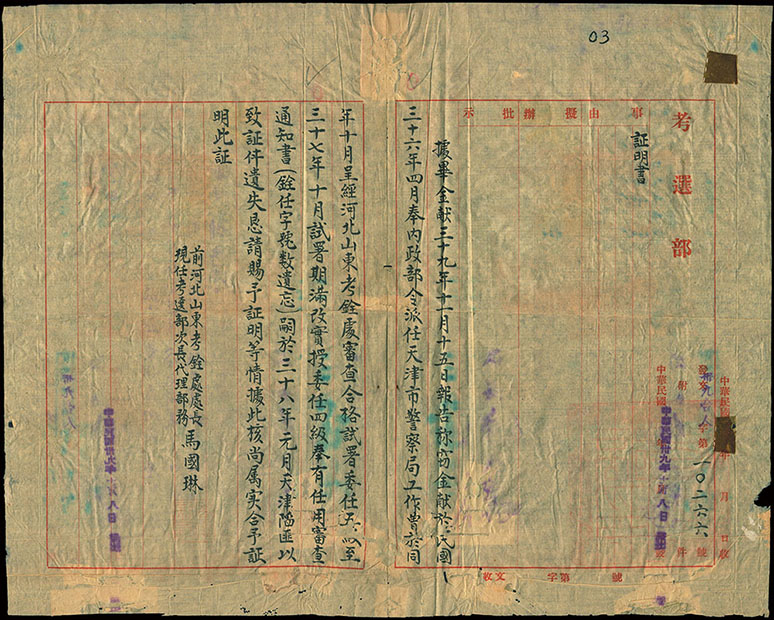 03
考選部
事由擬辦批示
証明書
據畢金献三十九年十一月十五日報告称窃金献於民國
三十六年四月奉內政部令派任天津市警察局工作曾於同
年十月呈經河北山東考銓處審查合格試署委任五級至
三十七年十月試署期滿改實授委任四級奉有任用審查
通知書(銓任字號數遺忘)嗣於三十八年元月天津陷匪以
致証件遺失恳請賜予証明等情據此核尚属实合予証
明此証
前河北山東考銓處處長
現任考選部次長代理部務
馬國琳
中華民國 年 月 日收
發文 字第一〇二六六號
附 件
中華民國卅九年 八日發
收文 字第 號